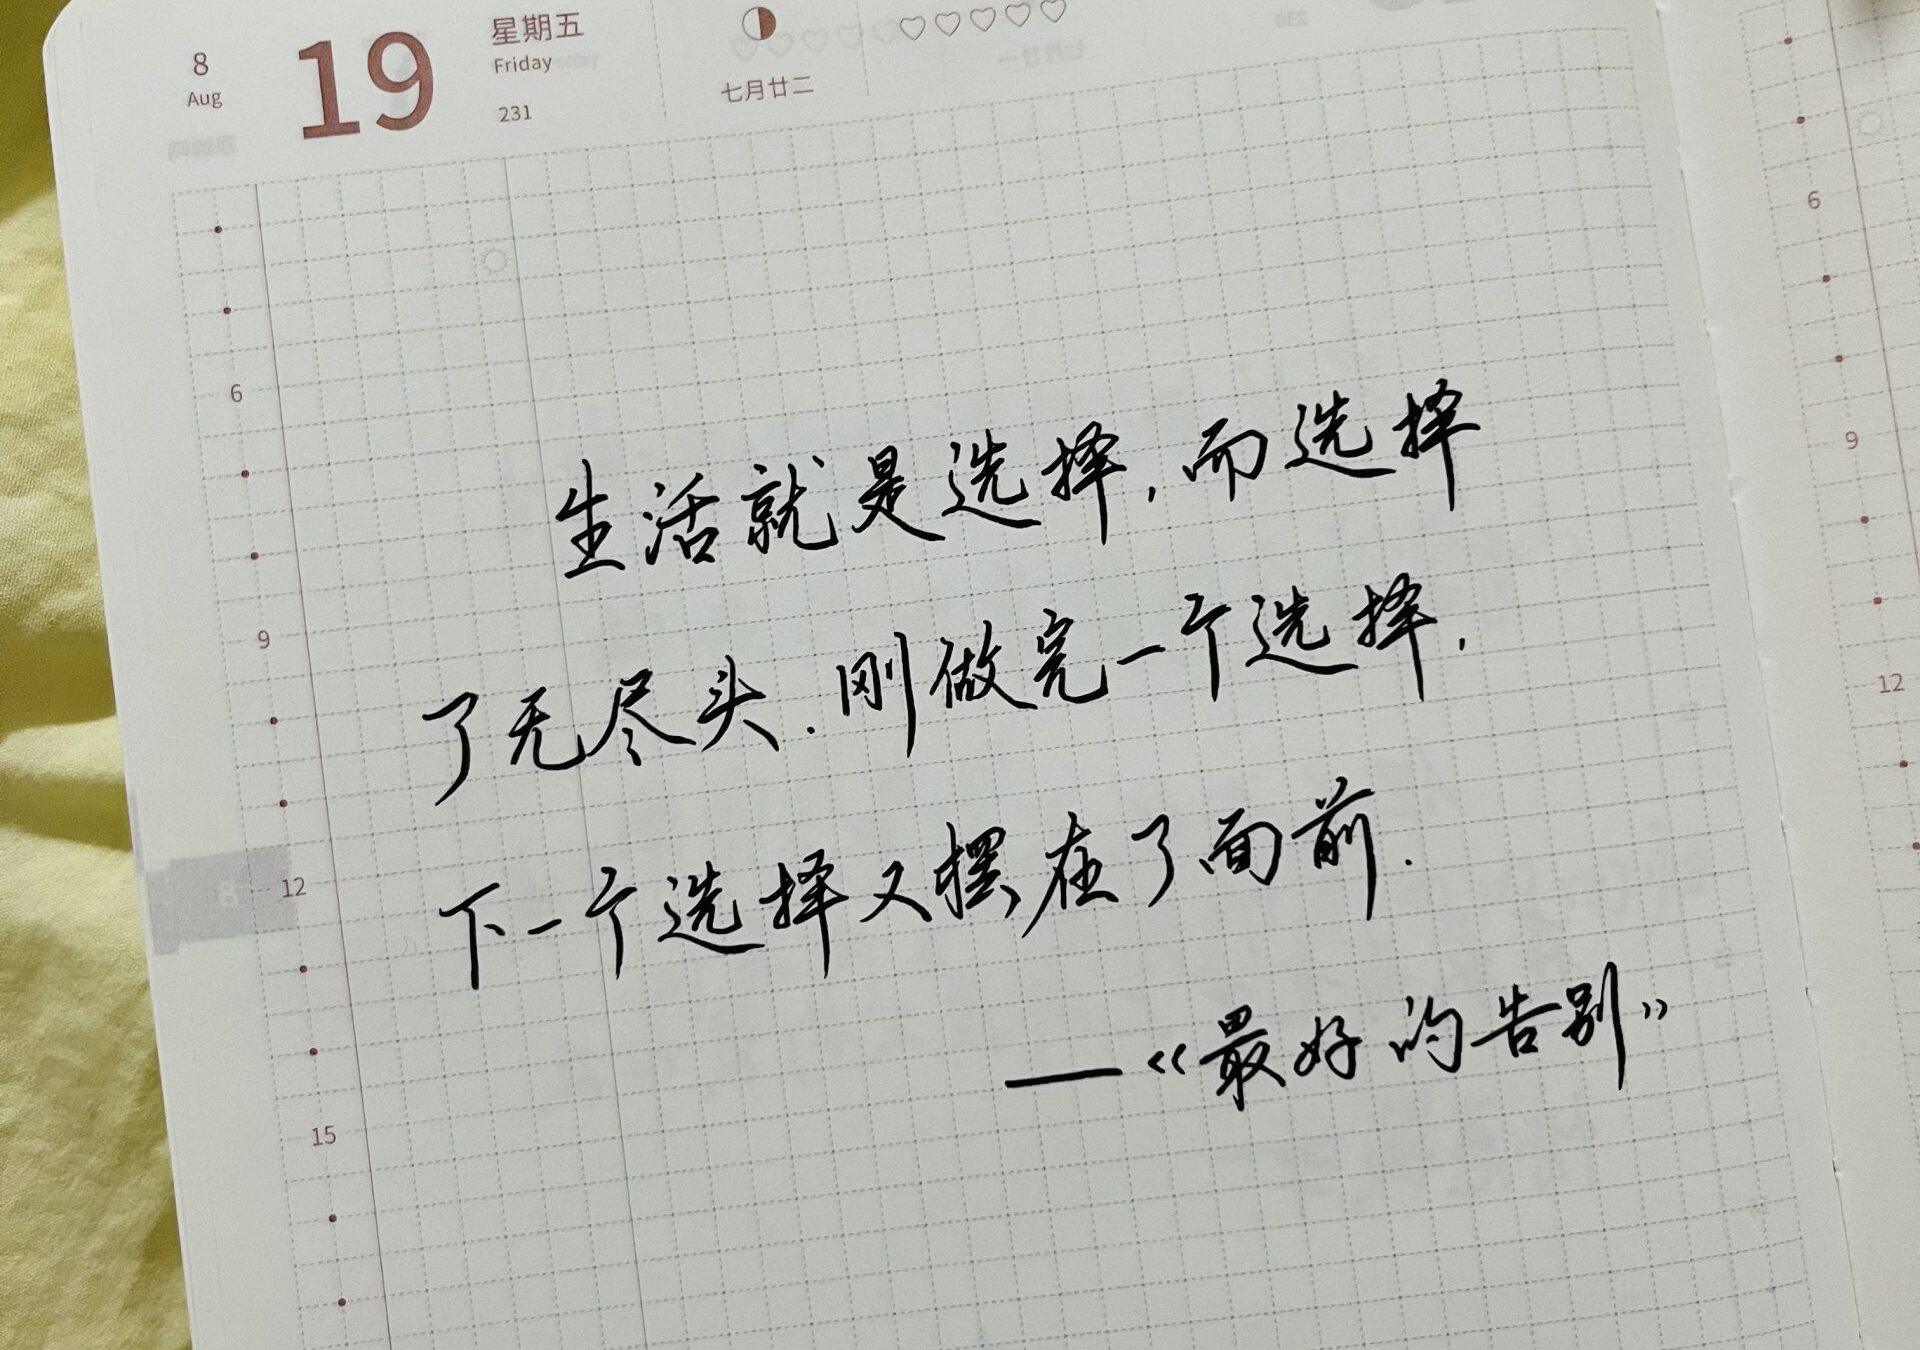 8
Aug
19
星期五
Friday
231
七月廿二
生活就是选择,而选择
了无尽头.刚做完一个选择,
下一个选择又摆在了面前.
—《最好的告别》
6
9
12
15
6
9
12